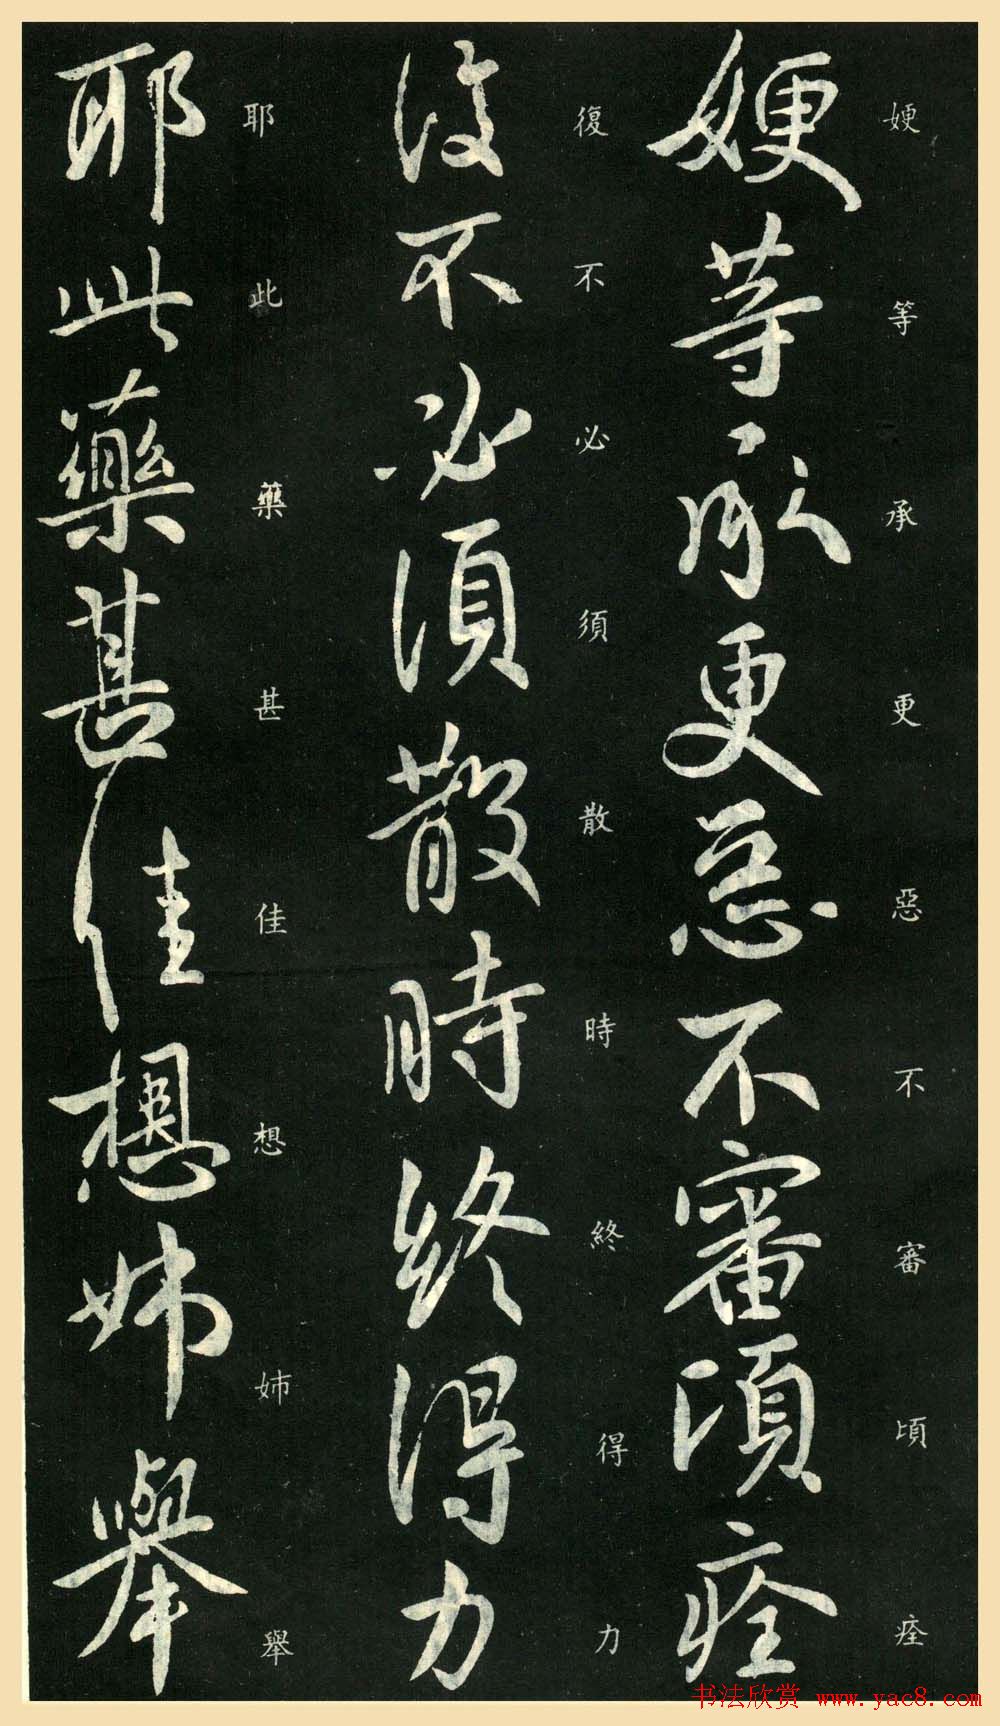 㛐等承更惡不審頃痊
㛐等承更惡不審頃痊
復不必須散時終得力
復不必須散時終得力
耶此藥甚佳想姊舉
耶此藥甚佳想姊舉
书法欣赏 www.yac8.com